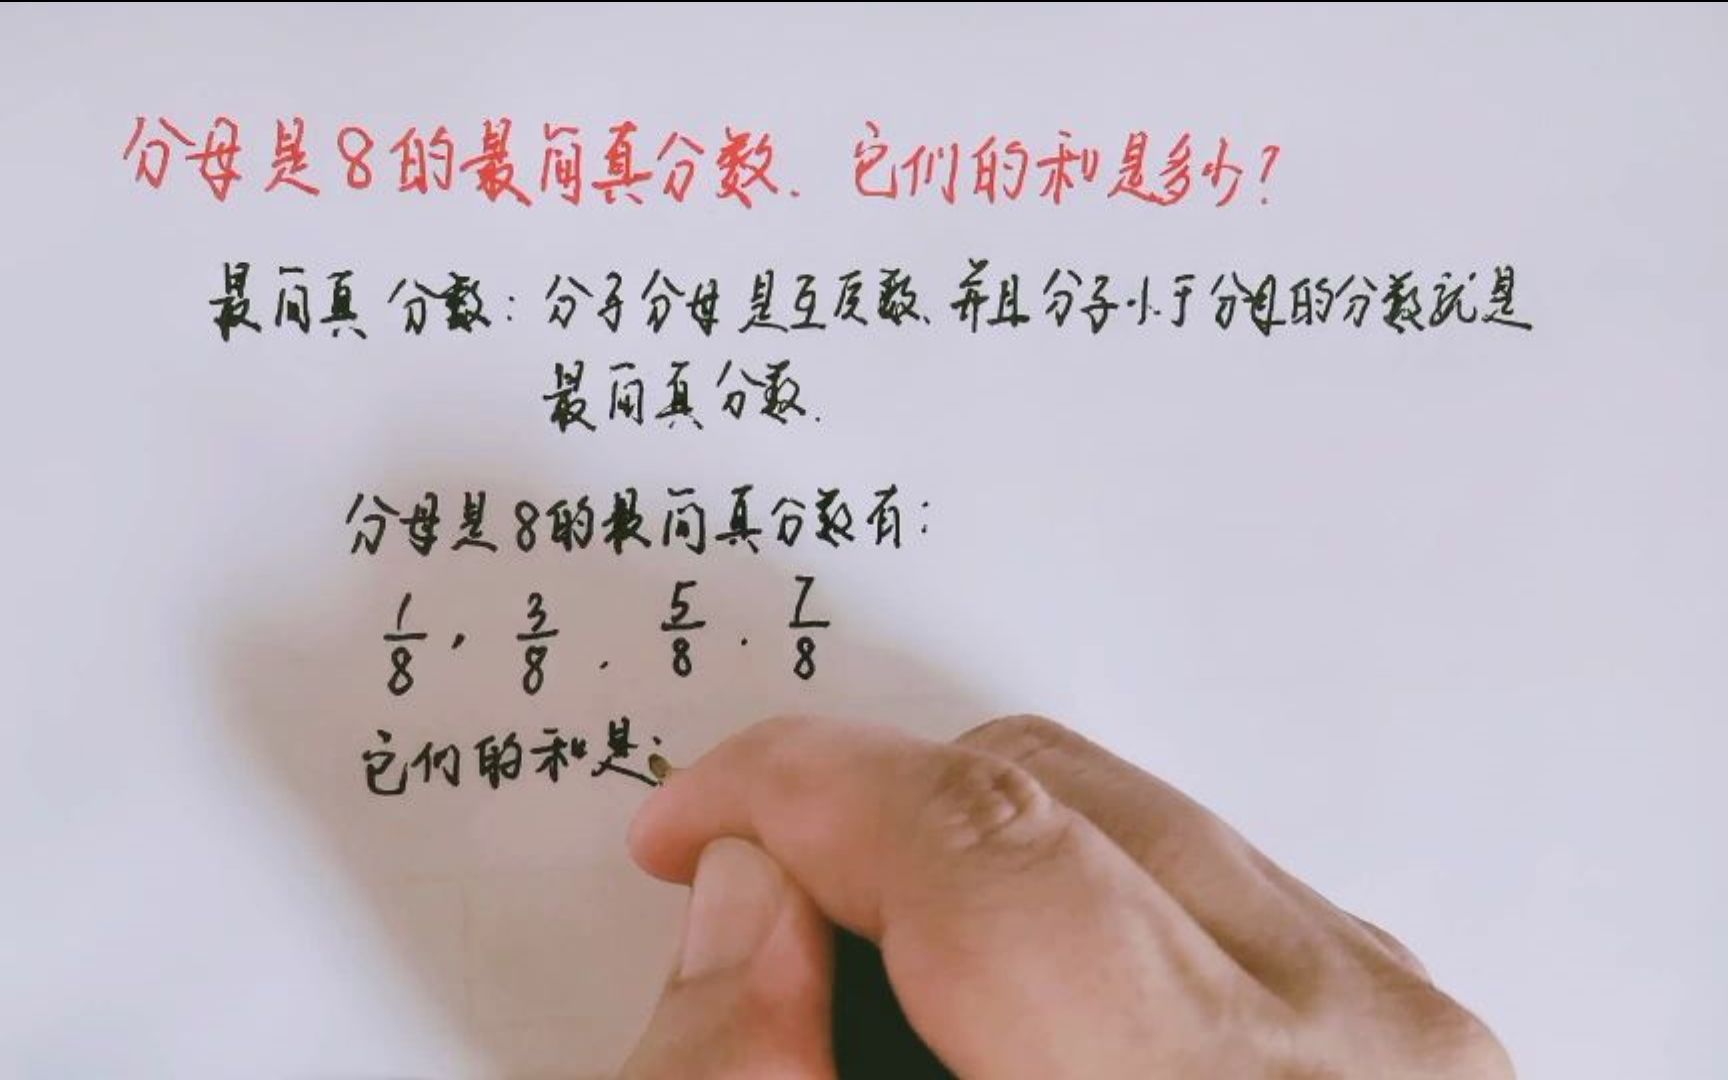 分母是8的最简真分数. 它们的和是多少?
最简真分数: 分子分母是互质数、并且分子小于分母的分数就是
最简真分数.
分母是8的最简真分数有:
1/8, 3/8. 5/8. 7/8
它们的和是: